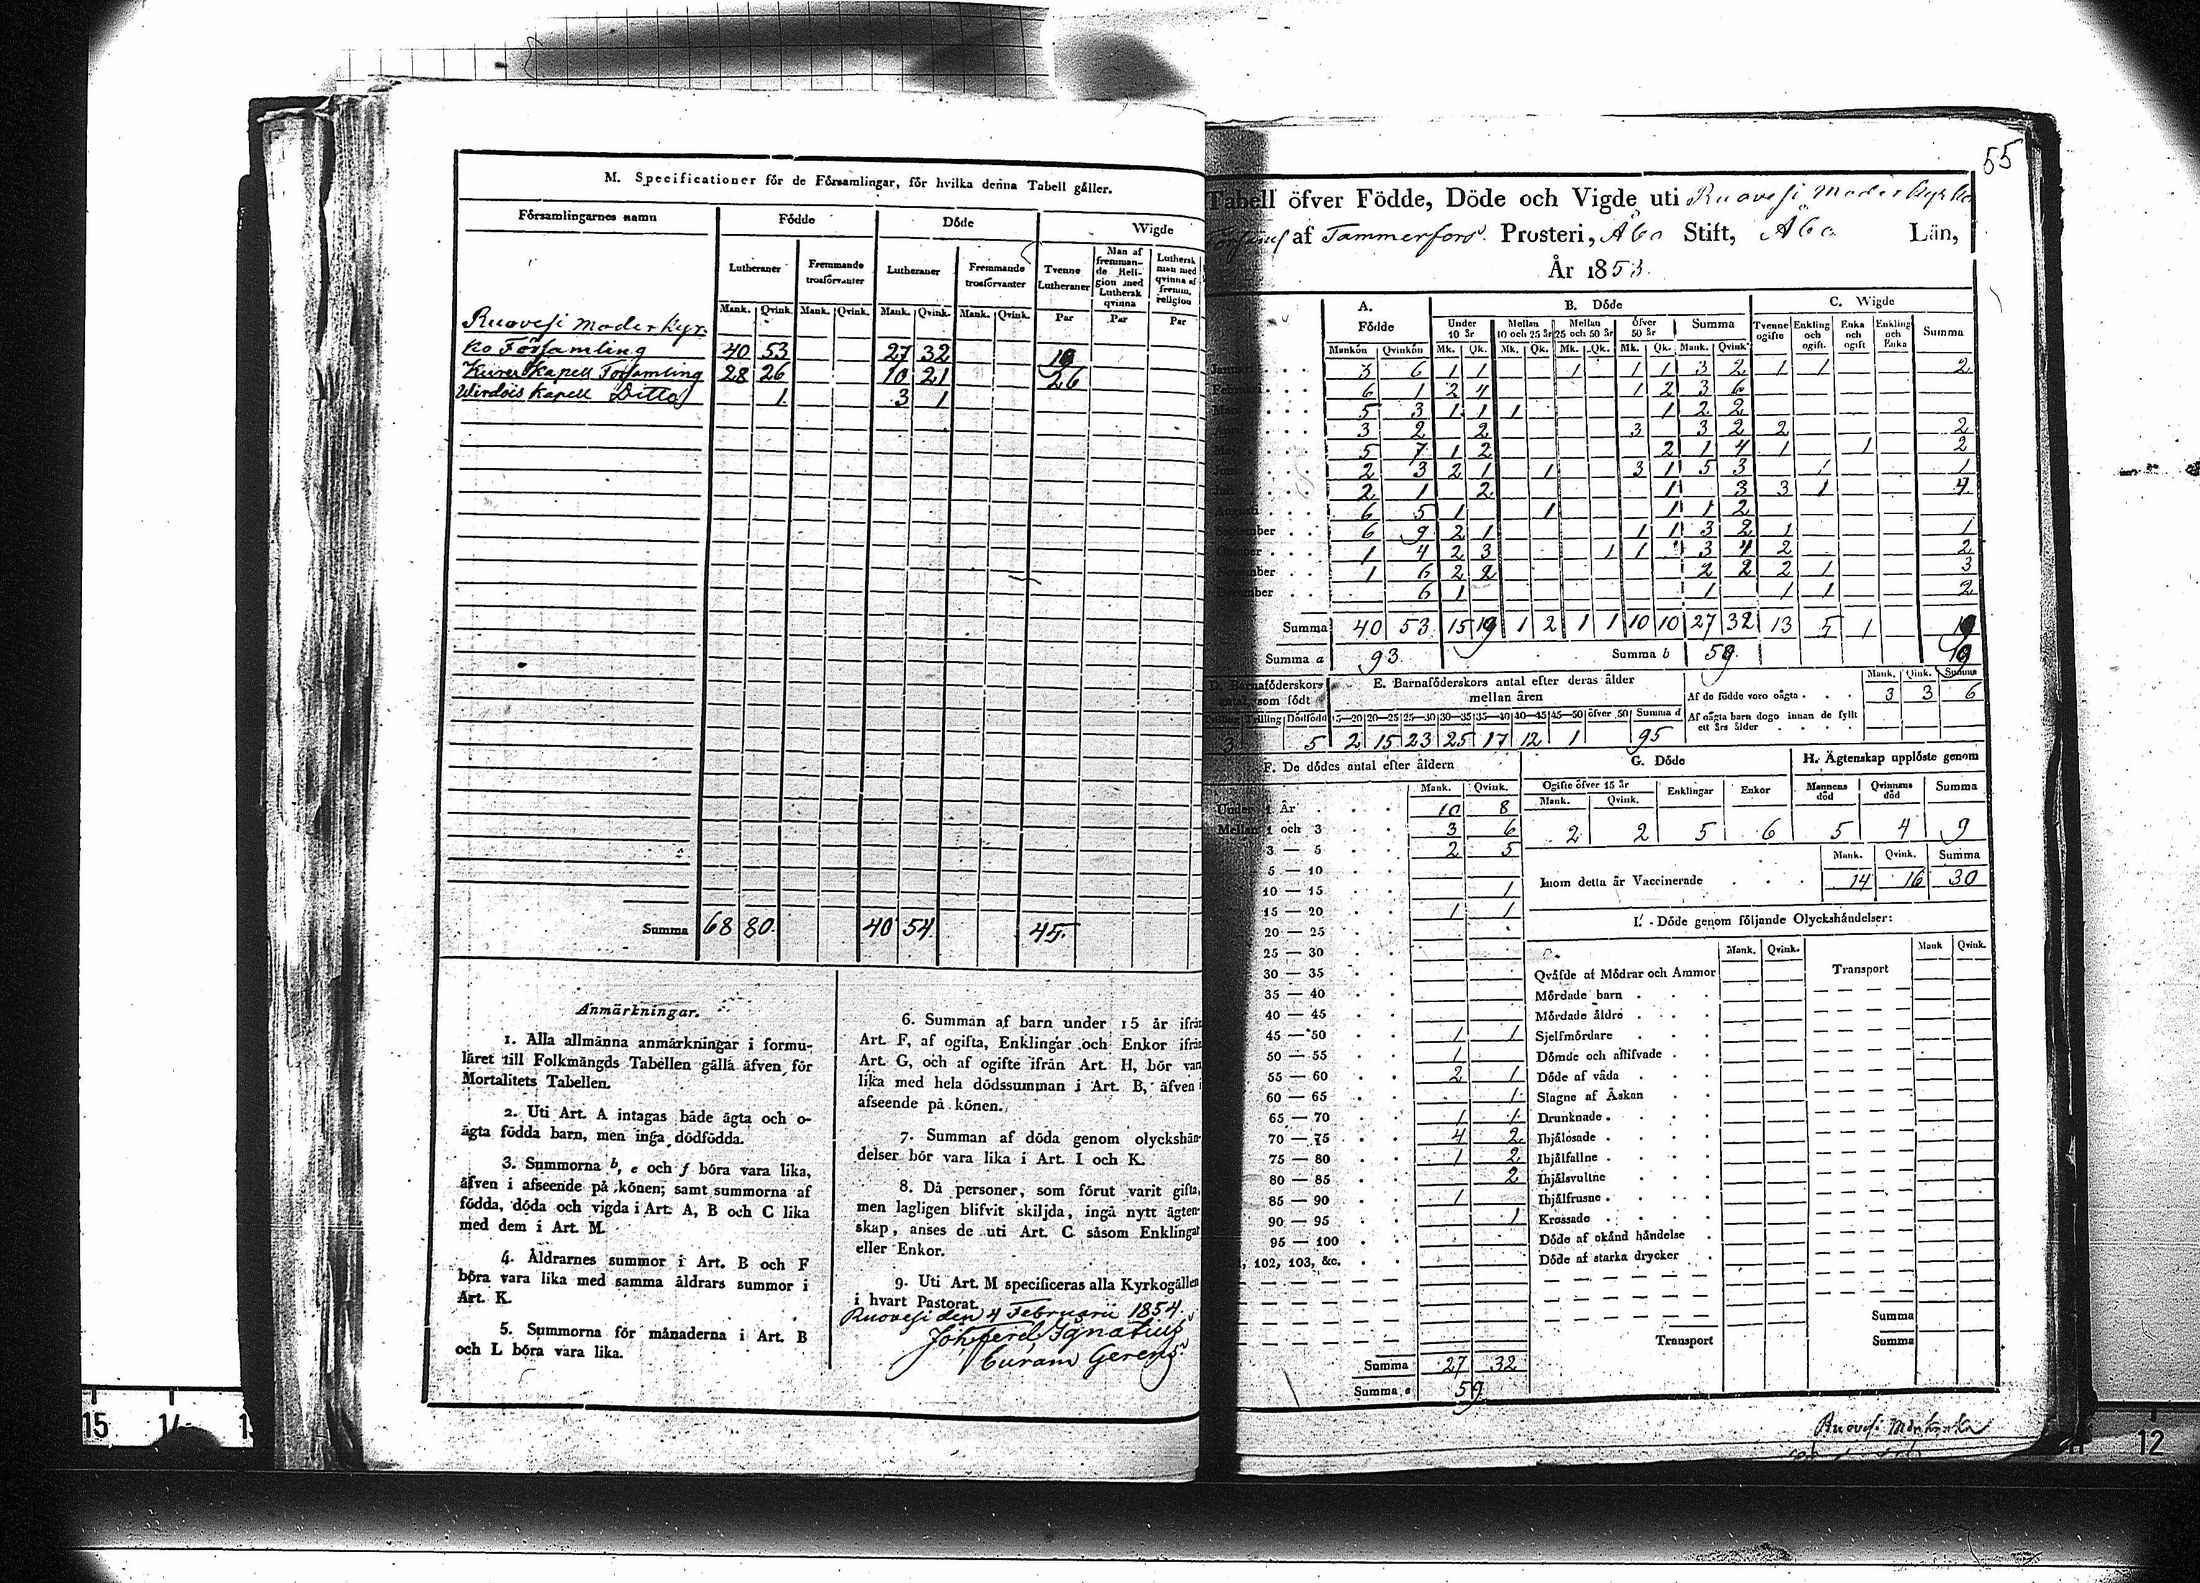 M. Specificationer för de Församlingar, för hvilka denna Tabell gäller.
Församlingarnes namn Födde Döde Wigde
Lutheraner Fremmande trosförvanter Lutheraner Fremmande trosförvanter Tvenne Lutheraner Man af fremmande Religion med Luthersk qvinna Luthersk man med qvinna af fremm. religion
Mank. Qvink. Mank. Qvink. Mank. Qvink. Mank. Qvink. Par Par Par
Ruovesi Moderkyr-
ko Församling 40 53 27 32 19
Kapell Församling 28 26 10 21 26
Wirdois Kapell Ditto 1 3 1
Summa 68 80 40 54 45.
Anmärkningar.
1. Alla allmänna anmärkningar i formu-
läret till Folkmängds Tabellen gälla äfven för
Mortalitets Tabellen.
2. Uti Art. A intagas både ägta och o-
ägta födda barn, men inga dödfödda.
3. Summorna b, e och f böra vara lika,
äfven i afseende på könen; samt summorna af
födda, döda och vigda i Art. A, B och C lika
med dem i Art. M.
4. Åldrarnes summor i Art. B och F
böra vara lika med samma åldrars summor i
Art. K.
5. Summorna för månaderna i Art. B
och L böra vara lika.
6. Summan af barn under 15 år ifrån
Art. F, af ogifta, Enklingar och Enkor ifrån
Art. G, och af ogifte ifrån Art. H, bör vara
lika med hela dödssumman i Art. B, äfven i
afseende på könen.
7. Summan af döda genom olyckshän-
delser bör vara lika i Art. I och K.
8. Då personer, som förut varit gifta,
men lagligen blifvit skiljda, ingå nytt ägten-
skap, anses de uti Art. C såsom Enklingar
eller Enkor.
9. Uti Art. M specificeras alla Kyrkogällen
i hvart Pastorat.
Ruovesi den 4 Februarii 1854.
Joh. Ferd. Ignatius
Curam Gerens
55
Tabell öfver Födde, Döde och Vigde uti Ruovesi Moderkyrko
af Tammerfors Prosteri, Åbo Stift, Åbo Län,
År 1853.
A. B. Döde C. Wigde
Födde Under 10 år Mellan 10 och 25 år Mellan 25 och 50 år Öfver 50 år Summa Tvenne ogifte Enkling och ogift. Enka och ogift Enkling och Enka Summa
Mankön Qvinkön Mk. Qk. Mk. Qk. Mk. Qk. Mk. Qk. Mank. Qvink.
Januari 3 6 1 1 1 1 1 3 2 1 1 2
Februari 6 1 2 4 1 2 3 6
Mars 5 3 1 1 1 1 2 2
3 2 2 3 3 2 2 2
5 7 1 2 2 1 4 1 1 2
Juni 2 3 2 1 1 3 1 5 3 1 1
Juli 2 1 2 1 3 3 1 4
Augusti 6 5 1 1 1 1 2
September 6 9 2 1 1 1 3 2 1 1
October 1 4 2 3 1 1 3 4 2 2
November 1 6 2 2 2 2 2 1 3
December 6 1 1 1 1 2
Summa 40 53 15 19 1 2 1 1 10 10 27 32 13 5 1 19
Summa a 93. Summa b 59. 19
D. Barnaföderskors antal, som födt
E. Barnaföderskors antal efter deras ålder mellan åren
Mank. Qvink. Summa
Af de födde voro oägta . . . 3 3 6
Af oägta barn dogo innan de fyllt ett års ålder . . . .
Tvilling Trilling Dödfödd 15—20 20—25 25—30 30—35 35—40 40—45 45—50 öfver 50 Summa d
3 5 2 15 23 25 17 12 1 95
F. De dödes antal efter åldern
Mank. Qvink.
Under 1 År 10 8
Mellan 1 och 3 3 6
3 — 5 2 5
5 — 10
10 — 15 1
15 — 20 1 1
20 — 25
25 — 30
30 — 35
35 — 40
40 — 45
45 — 50 1 1
50 — 55 1
55 — 60 2 1
60 — 65 1
65 — 70 1 1
70 — 75 4 2
75 — 80 1 2
80 — 85 2
85 — 90 1
90 — 95 1
95 — 100
102, 103, &c.
Summa 27 32
Summa e 59
G. Döde
Ogifte öfver 15 år Enklingar Enkor
Mank. Qvink.
2 2 5 6
H. Ägtenskap upplöste genom
Mannens död Qvinnans död Summa
5 4 9
Mank. Qvink. Summa
Inom detta år Vaccinerade . . . 14 16 30
I. Döde genom följande Olyckshändelser:
Mank. Qvink. Transport Mank Qvink.
Qväfde af Mödrar och Ammor
Mördade barn
Mördade äldre
Sjelfmördare
Dömde och aflifvade
Döde af våda
Slagne af Åskan
Drunknade
Ihjälosade
Ihjälfallne
Ihjälsvultne
Ihjälfrusne
Krossade
Döde af okänd händelse
Döde af starka drycker
Summa
Transport Summa
Ruovesi
15 14 12